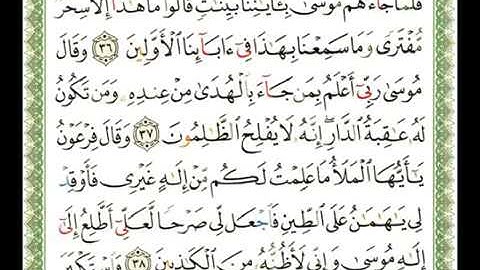 فَلَمَّا جَآءَهُم مُّوسَىٰ بِـَٔايَٰتِنَا بَيِّنَٰتٖ قَالُواْ مَا هَٰذَآ إِلَّا سِحۡرٞ
مُّفۡتَرٗى وَمَا سَمِعۡنَا بِهَٰذَا فِيٓ ءَابَآئِنَا ٱلۡأَوَّلِينَ ٣٦ وَقَالَ
مُوسَىٰ رَبِّيٓ أَعۡلَمُ بِمَن جَآءَ بِٱلۡهُدَىٰ مِنۡ عِندِهِۦ وَمَن تَكُونُ
لَهُۥ عَٰقِبَةُ ٱلدَّارِۚ إِنَّهُۥ لَا يُفۡلِحُ ٱلظَّٰلِمُونَ ٣٧ وَقَالَ فِرۡعَوۡنُ
يَٰٓأَيُّهَا ٱلۡمَلَأُ مَا عَلِمۡتُ لَكُم مِّنۡ إِلَٰهٍ غَيۡرِي فَأَوۡقِدۡ
لِي يَٰهَٰمَٰنُ عَلَى ٱلطِّينِ فَٱجۡعَل لِّي صَرۡحٗا لَّعَلِّيٓ أَطَّلِعُ إِلَىٰٓ
إِلَٰهِ مُوسَىٰ وَإِنِّي لَأَظُنُّهُۥ مِنَ ٱلۡكَٰذِبِينَ ٣٨ وَٱسۡتَكۡبَرَ